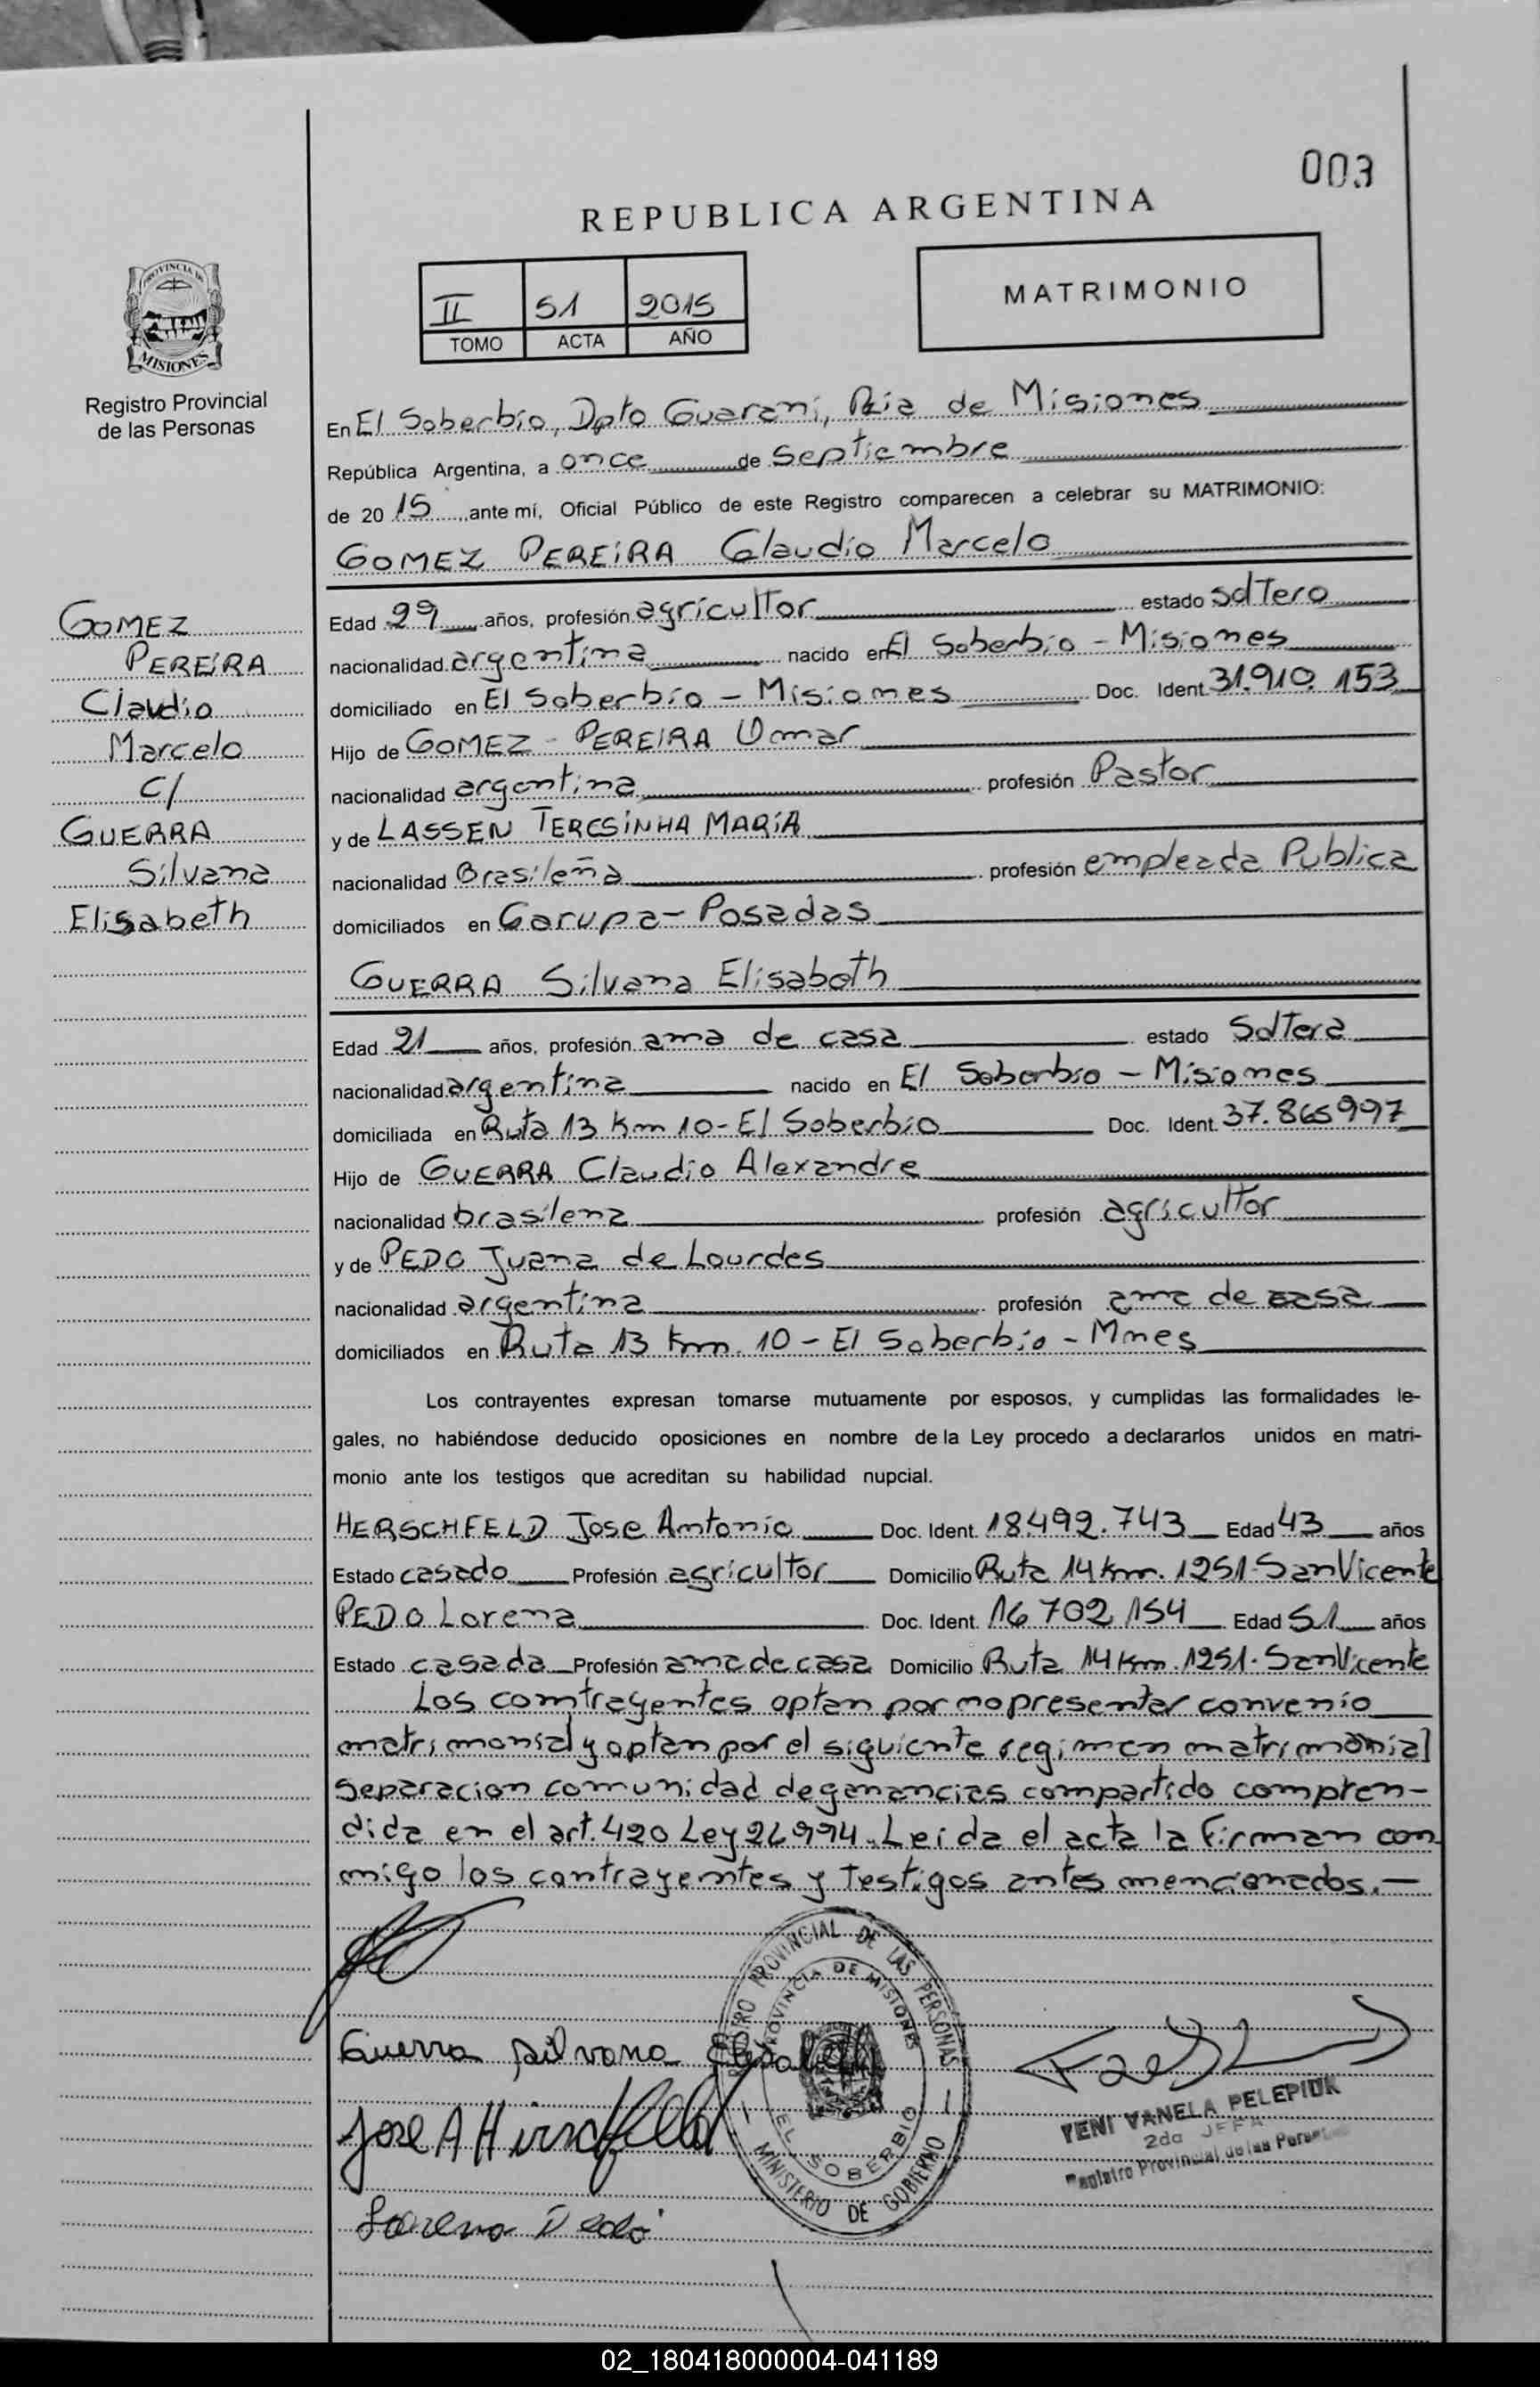 003
REPUBLICA ARGENTINA
PROVINCIA DE
MISIONES
Registro Provincial
de las Personas
II 51 2015
TOMO ACTA AÑO
MATRIMONIO
En El Soberbio, Dpto Guarani, Pcia de Misiones
República Argentina, a once de Septiembre
de 2015, ante mí, Oficial Público de este Registro comparecen a celebrar su MATRIMONIO:
GOMEZ PEREIRA Claudio Marcelo
GOMEZ
PEREIRA
Claudio
Marcelo
C/
GUERRA
Silvana
Elisabeth
Edad 29 años, profesión agricultor estado soltero
nacionalidad argentina nacido en El Soberbio - Misiones
domiciliado en El Soberbio - Misiones Doc. Ident. 31.910.153
Hijo de GOMEZ - PEREIRA Omar
nacionalidad argentina profesión Pastor
y de LASSEN TERESINHA MARIA
nacionalidad Brasileña profesión empleada Publica
domiciliados en Garupa - Posadas
GUERRA Silvana Elisabeth
Edad 21 años, profesión ama de casa estado Soltera
nacionalidad argentina nacido en El Soberbio - Misiones
domiciliada en Ruta 13 Km 10 - El Soberbio Doc. Ident. 37.865997
Hijo de GUERRA Claudio Alexandre
nacionalidad brasilena profesión agricultor
y de PEDO Juana de Lourdes
nacionalidad argentina profesión ama de casa
domiciliados en Ruta 13 Km. 10 - El Soberbio - Mnes
Los contrayentes expresan tomarse mutuamente por esposos, y cumplidas las formalidades le-
gales, no habiéndose deducido oposiciones en nombre de la Ley procedo a declararlos unidos en matri-
monio ante los testigos que acreditan su habilidad nupcial.
HERSCHFELD Jose Antonio Doc. Ident. 18.492.743 Edad 43 años
Estado casado Profesión agricultor Domicilio Ruta 14 Km. 1251 - San Vicente
PEDO Lorena Doc. Ident. 16 702 154 Edad 51 años
Estado casada Profesión ama de casa Domicilio Ruta 14 Km. 1251 - San Vicente
Los contrayentes optan por no presentar convenio
matrimonial y optan por el siguiente regimen matrimonial
separacion comunidad de ganancias compartido compren-
dida en el art. 420 Ley 26994. Leida el acta la firman con
migo los contrayentes y testigos antes mencionados.-
Guerra Silvana Elisabeth
Jose A Hirschfeld
Lorena Pedó
REGISTRO PROVINCIAL DE LAS PERSONAS
PROVINCIA DE MISIONES
EL SOBERBIO
MINISTERIO DE GOBIERNO
YENI VANELA PELEPIUK
2da JEFA
Registro Provincial de las Personas
02_180418000004-041189